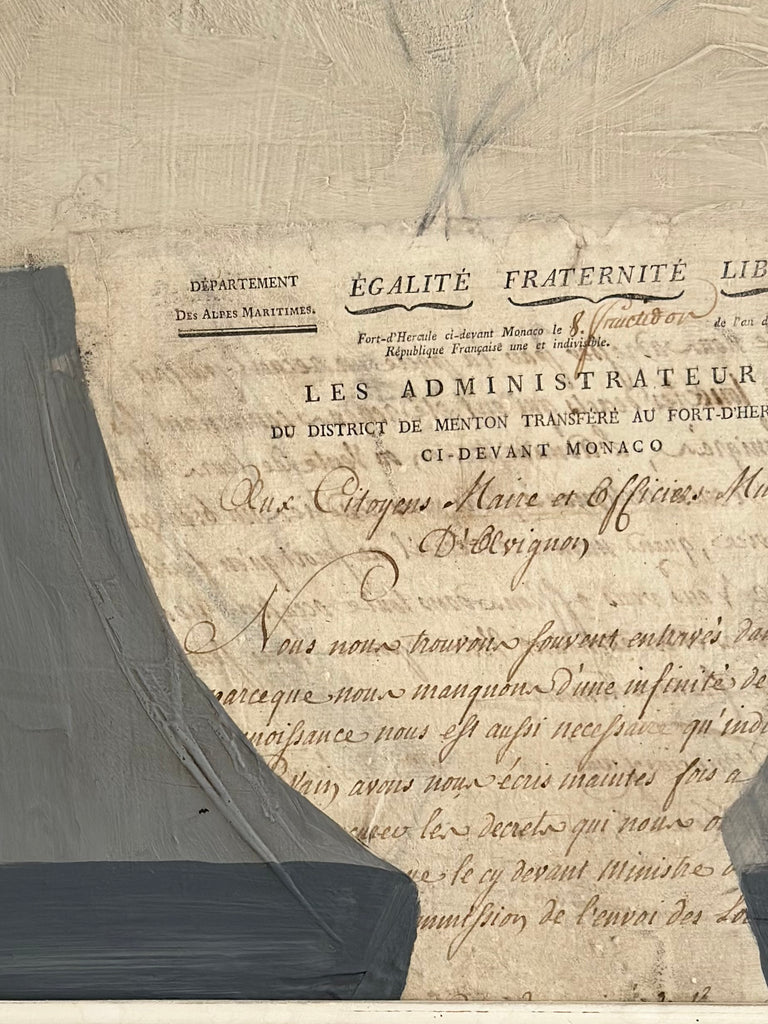 DÉPARTEMENT
DES ALPES MARITIMES.
ÉGALITÉ FRATERNITÉ LIB
Fort-d'Hercule ci-devant Monaco le 8. fructidor de l'an d
République Française une et indivisible.
LES ADMINISTRATEUR
DU DISTRICT DE MENTON TRANSFÉRÉ AU FORT-D'HER
CI-DEVANT MONACO
Aux Citoyens Maire et Officiers Mu
D'Avignon
Nous nous trouvons souvent entravés da
parceque nous manquons d'une infinité de
noissance nous est aussi necessaire qu'ind
Vain avons nous écris maintes fois a
les decrets qui nous o
ue le cy devant Ministre
mmission de l'envoi des Lo